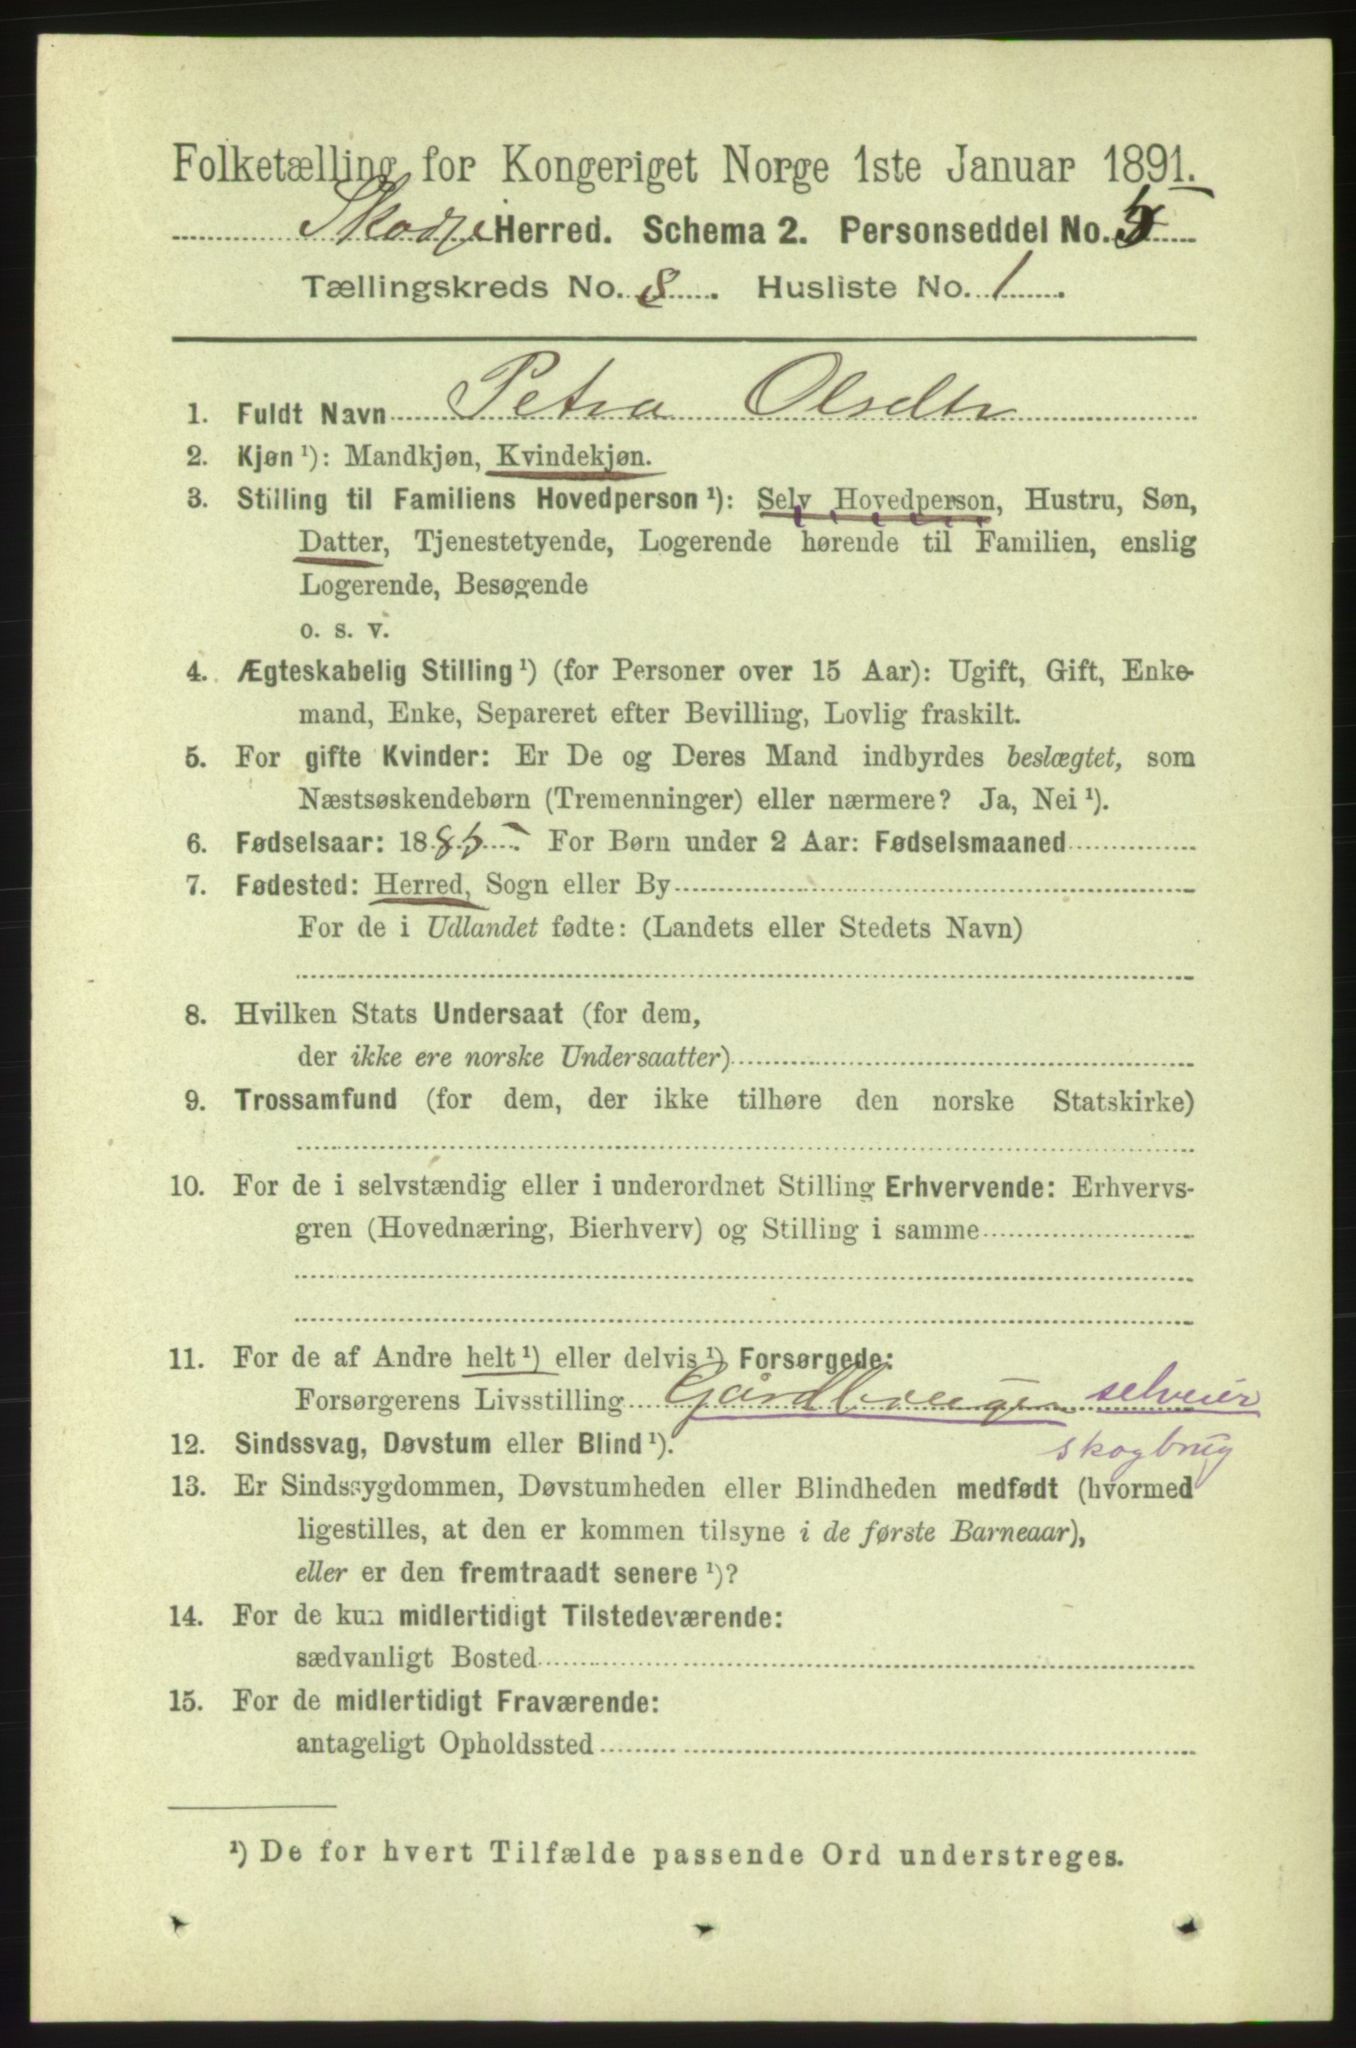 Folketælling for Kongeriget Norge 1ste Januar 1891.
Skodje Herred. Schema 2. Personseddel No. 5
Tællingskreds No. 8. Husliste No. 1.
1. Fuldt Navn Petra Olsdtr
2. Kjøn ¹): Mandkjøn, Kvindekjøn.
3. Stilling til Familiens Hovedperson ¹): Selv Hovedperson, Hustru, Søn,
Datter, Tjenestetyende, Logerende hørende til Familien, enslig
Logerende, Besøgende
o. s. v.
4. Ægteskabelig Stilling ¹) (for Personer over 15 Aar): Ugift, Gift, Enke-
mand, Enke, Separeret efter Bevilling, Lovlig fraskilt.
5. For gifte Kvinder: Er De og Deres Mand indbyrdes beslægtet, som
Næstsøskendebørn (Tremenninger) eller nærmere? Ja, Nei ¹).
6. Fødselsaar: 1885. For Børn under 2 Aar: Fødselsmaaned
7. Fødested: Herred, Sogn eller By
For de i Udlandet fødte: (Landets eller Stedets Navn)
8. Hvilken Stats Undersaat (for dem,
der ikke ere norske Undersaatter)
9. Trossamfund (for dem, der ikke tilhøre den norske Statskirke)
10. For de i selvstændig eller i underordnet Stilling Erhvervende: Erhvervs-
gren (Hovednæring, Bierhverv) og Stilling i samme
11. For de af Andre helt ¹) eller delvis ¹) Forsørgede:
Forsørgerens Livsstilling Gårdbruger selveier
skogbrug
12. Sindssvag, Døvstum eller Blind ¹).
13. Er Sindssygdommen, Døvstumheden eller Blindheden medfødt (hvormed
ligestilles, at den er kommen tilsyne i de første Barneaar),
eller er den fremtraadt senere ¹)?
14. For de kun midlertidigt Tilstedeværende:
sædvanligt Bosted
15. For de midlertidigt Fraværende:
antageligt Opholdssted
¹) De for hvert Tilfælde passende Ord understreges.